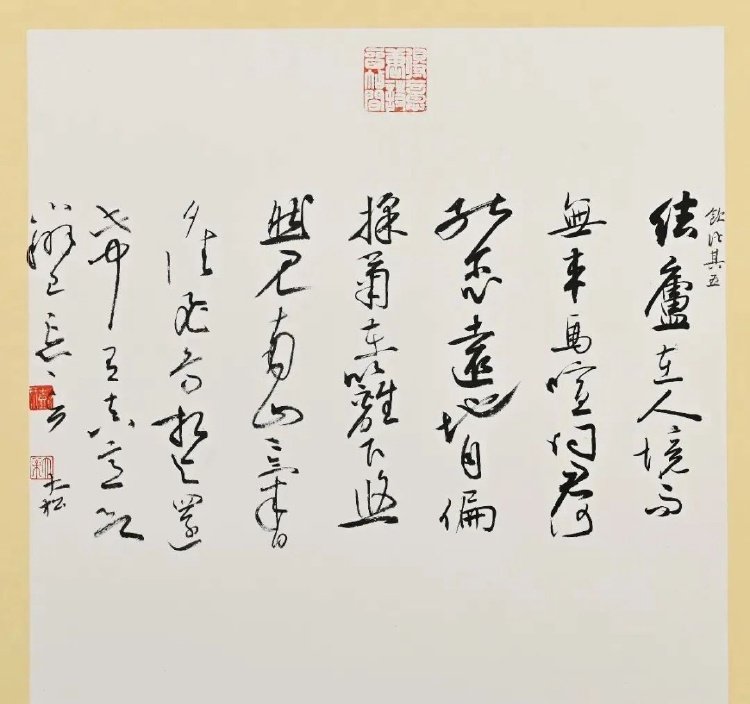 飲酒其五
結廬在人境而
無車馬喧問君何
能尔心遠地自偏
採菊東籬下悠
然見南山〻氣日
夕佳飛鳥相与還
此中有真意欲
辨已忘言
大松